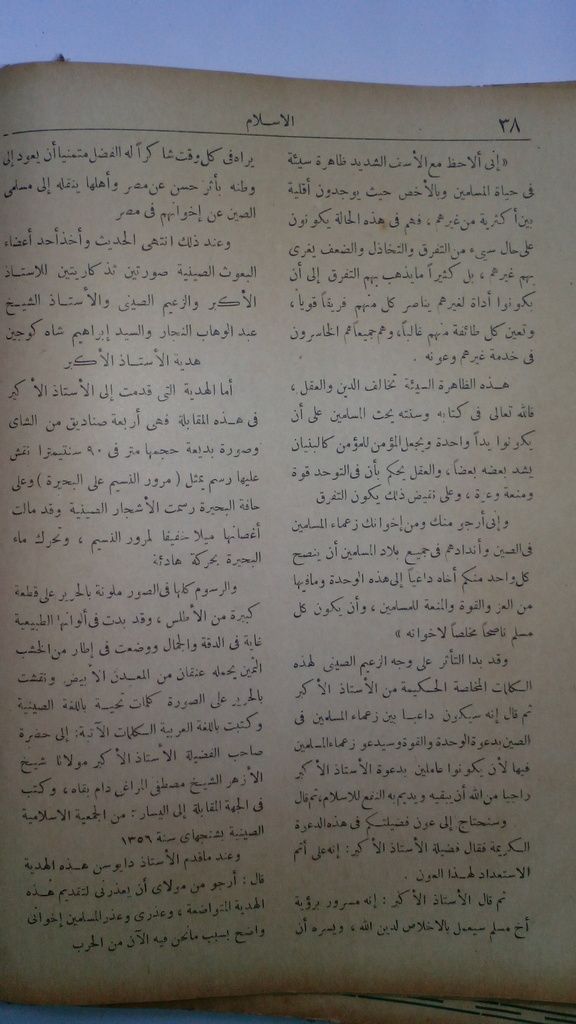 ٣٨
الاسلام
« إنى ألاحظ مع الأسف الشديد ظاهرة سيئة
فى حياة المسلمين وبالأخص حيث يوجدون أقلية
بين أكثرية من غيرهم ، فهم فى هذه الحالة يكونون
على حال سيىء من التفرق والتخاذل والضعف يغرى
بهم غيرهم ، بل كثيراً ما يذهب بهم التفرق إلى أن
يكونوا أداة لغيرهم يناصر كل منهم فريقاً قوياً ،
وتعين كل طائفة منهم غالباً ، وهم جميعاً هم الخاسرون
فى خدمة غيرهم وعونه .
هـذه الظاهرة السيئة تخالف الدين والعقل ،
فالله تعالى فى كتابه وسنته يحث المسلمين على أن
يكونوا يداً واحدة ويجعل المؤمن للمؤمن كالبنيان
يشد بعضه بعضاً ، والعقل يحكم بأن فى التوحد قوة
ومنعة وعزة ، وعلى نقيض ذلك يكون التفرق
وإنى أرجو منك ومن إخوانك زعماء المسلمين
فى الصين وأندادهم فى جميع بلاد المسلمين أن ينصح
كل واحد منكم أخاه داعياً إلى هذه الوحدة وما فيها
من العز والقوة والمنعة للمسلمين ، وأن يكون كل
مسلم ناصحاً مخلصاً لاخوانه »
وقد بدا التأثر على وجه الزعيم الصينى لهذه
الكلمات المخلصة الحكيمة من الأستاذ الأكبر
ثم قال إنه سيكون داعيـا بين زعماء المسلمين فى
الصين بدعوة الوحدة والقوة وسيدعو زعماء المسلمين
فيها لأن يكونوا عاملين بدعوة الأستاذ الأكبر
راجيا من الله أن يبقيه ويديم به النفع للاسلام ، ثم قال
وسنحتاج إلى عون فضيلتكم فى هذه الدعوة
الكريمة فقال فضيلة الأستاذ الأكبر : إنه على أتم
الاستعداد لهـذا العون .
ثم قال الأستاذ الأكبر : إنه مسرور برؤية
أخ مسلم سيعمل بالاخلاص لدين الله ، ويسره أن
يراه فى كل وقت شاكراً له الفضل متمنيا أن يعود إلى
وطنه بأثر حسن عن مصر وأهلها ينقله إلى مسلمى
الصين عن إخوانهم فى مصر
وعند ذلك انتهى الحديث وأخذ أحد أعضاء
البعوث الصينية صورتين تذكاريتين للاستـاذ
الأكبر والزعيم الصينى والأستـاذ الشيـخ
عبد الوهاب النجار والسيد إبراهيم شاه كوجين
هدية الأستـاذ الأكبر
أما الهدية التى قدمت إلى الأستاذ الأكبر
فى هـذه المقابلة فهى أربعة صناديق من الشاى
وصورة بديعة حجمها متر فى ٩٠ سنتيمترا نقش
عليها رسم يمثل ( مرور النسيم على البحيرة ) وعلى
حافة البحيرة رسمت الأشجار الصينية وقد مالت
أغصانها ميلا خفيفا لمرور النسيم ، وتحرك ماء
البحيرة بحركة هادئة
والرسوم كلها فى الصور ملونة بالحرير على قطعة
كبيرة من الأطلس ، وقد بدت فى ألوانها الطبيعية
غاية فى الدقة والجمال ووضعت فى إطار من الخشب
الثمين يحمله عنقان من المعـدن الأبيض ونقشت
بالحرير على الصورة كلمات تحيـة باللغة الصينية
وكتبت باللغة العربية الكلمات الآتية : إلى حضرة
صاحب الفضيلة الأستاذ الأكبر مولانا شيـخ
الأزهر الشيـخ مصطفى المراغى دام بقاه ، وكتب
فى الجهة المقابلة إلى اليسار : من الجمعية الاسلامية
الصينية بشنجهاى سنة ١٣٥٦
وعند ما قدم الأستاذ دايوسن هـذه الهدية
قال : أرجو من مولاى أن يعذرنى لتقديم هـذه
الهدية المتواضعة ، وعذرى وعذر المسلمين إخوانى
واضح بسبب ما نحن فيه الآن من الحرب